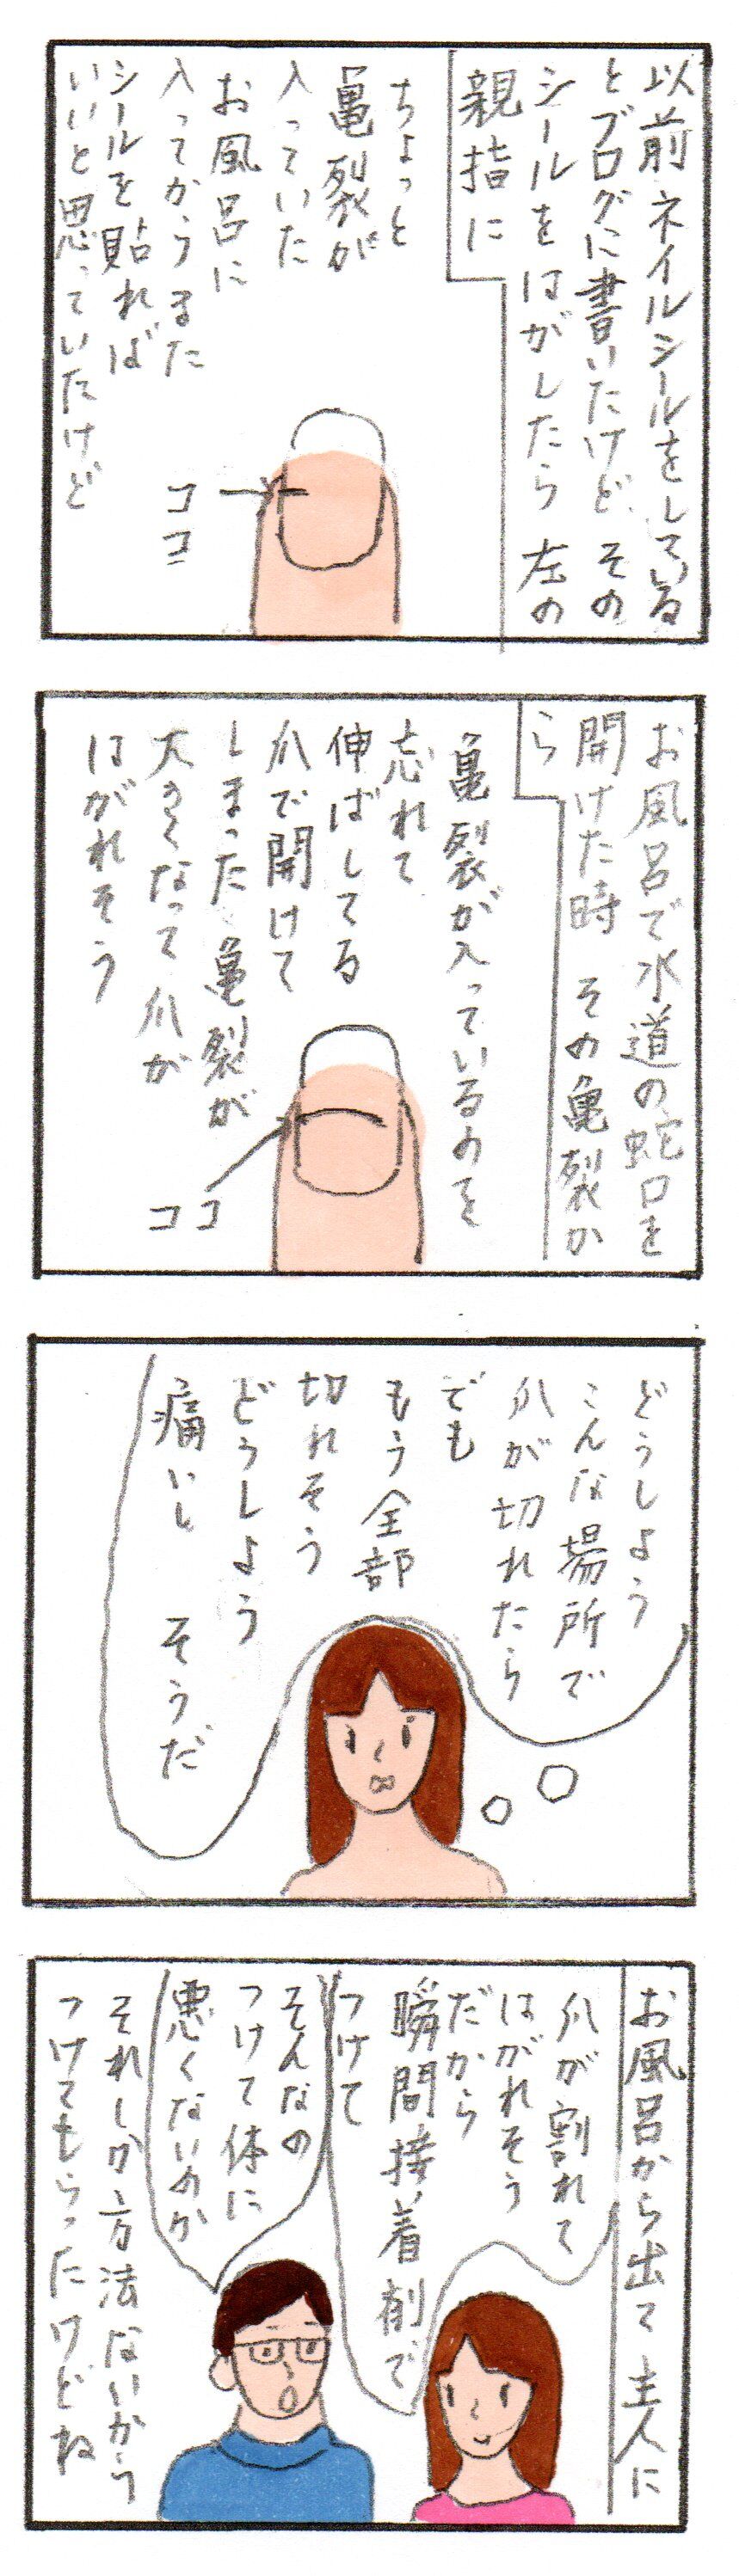 以前ネイルシールをしている
とブログに書いたけど、その
シールをはがしたら左の
親指に
ちょっと
亀裂が
入っていた
お風呂に
入ってからまた
シールを貼れば
いいと思っていたけど
ココ
お風呂で水道の蛇口を
開けた時 その亀裂か
ら
亀裂が入っているのを
忘れて
伸ばしてる
爪で開けて
しまった亀裂が
大きくなって爪が
はがれそう
ココ
どうしよう
こんな場所で
爪が切れたら
でも
もう全部
切れそう
どうしよう
痛いし そうだ
お風呂から出て主人に
爪が割れて
はがれそう
だから
瞬間接着剤で
つけて
そんなの
つけて体に
悪くないのか
それしか方法ないから
つけてもらったけどね